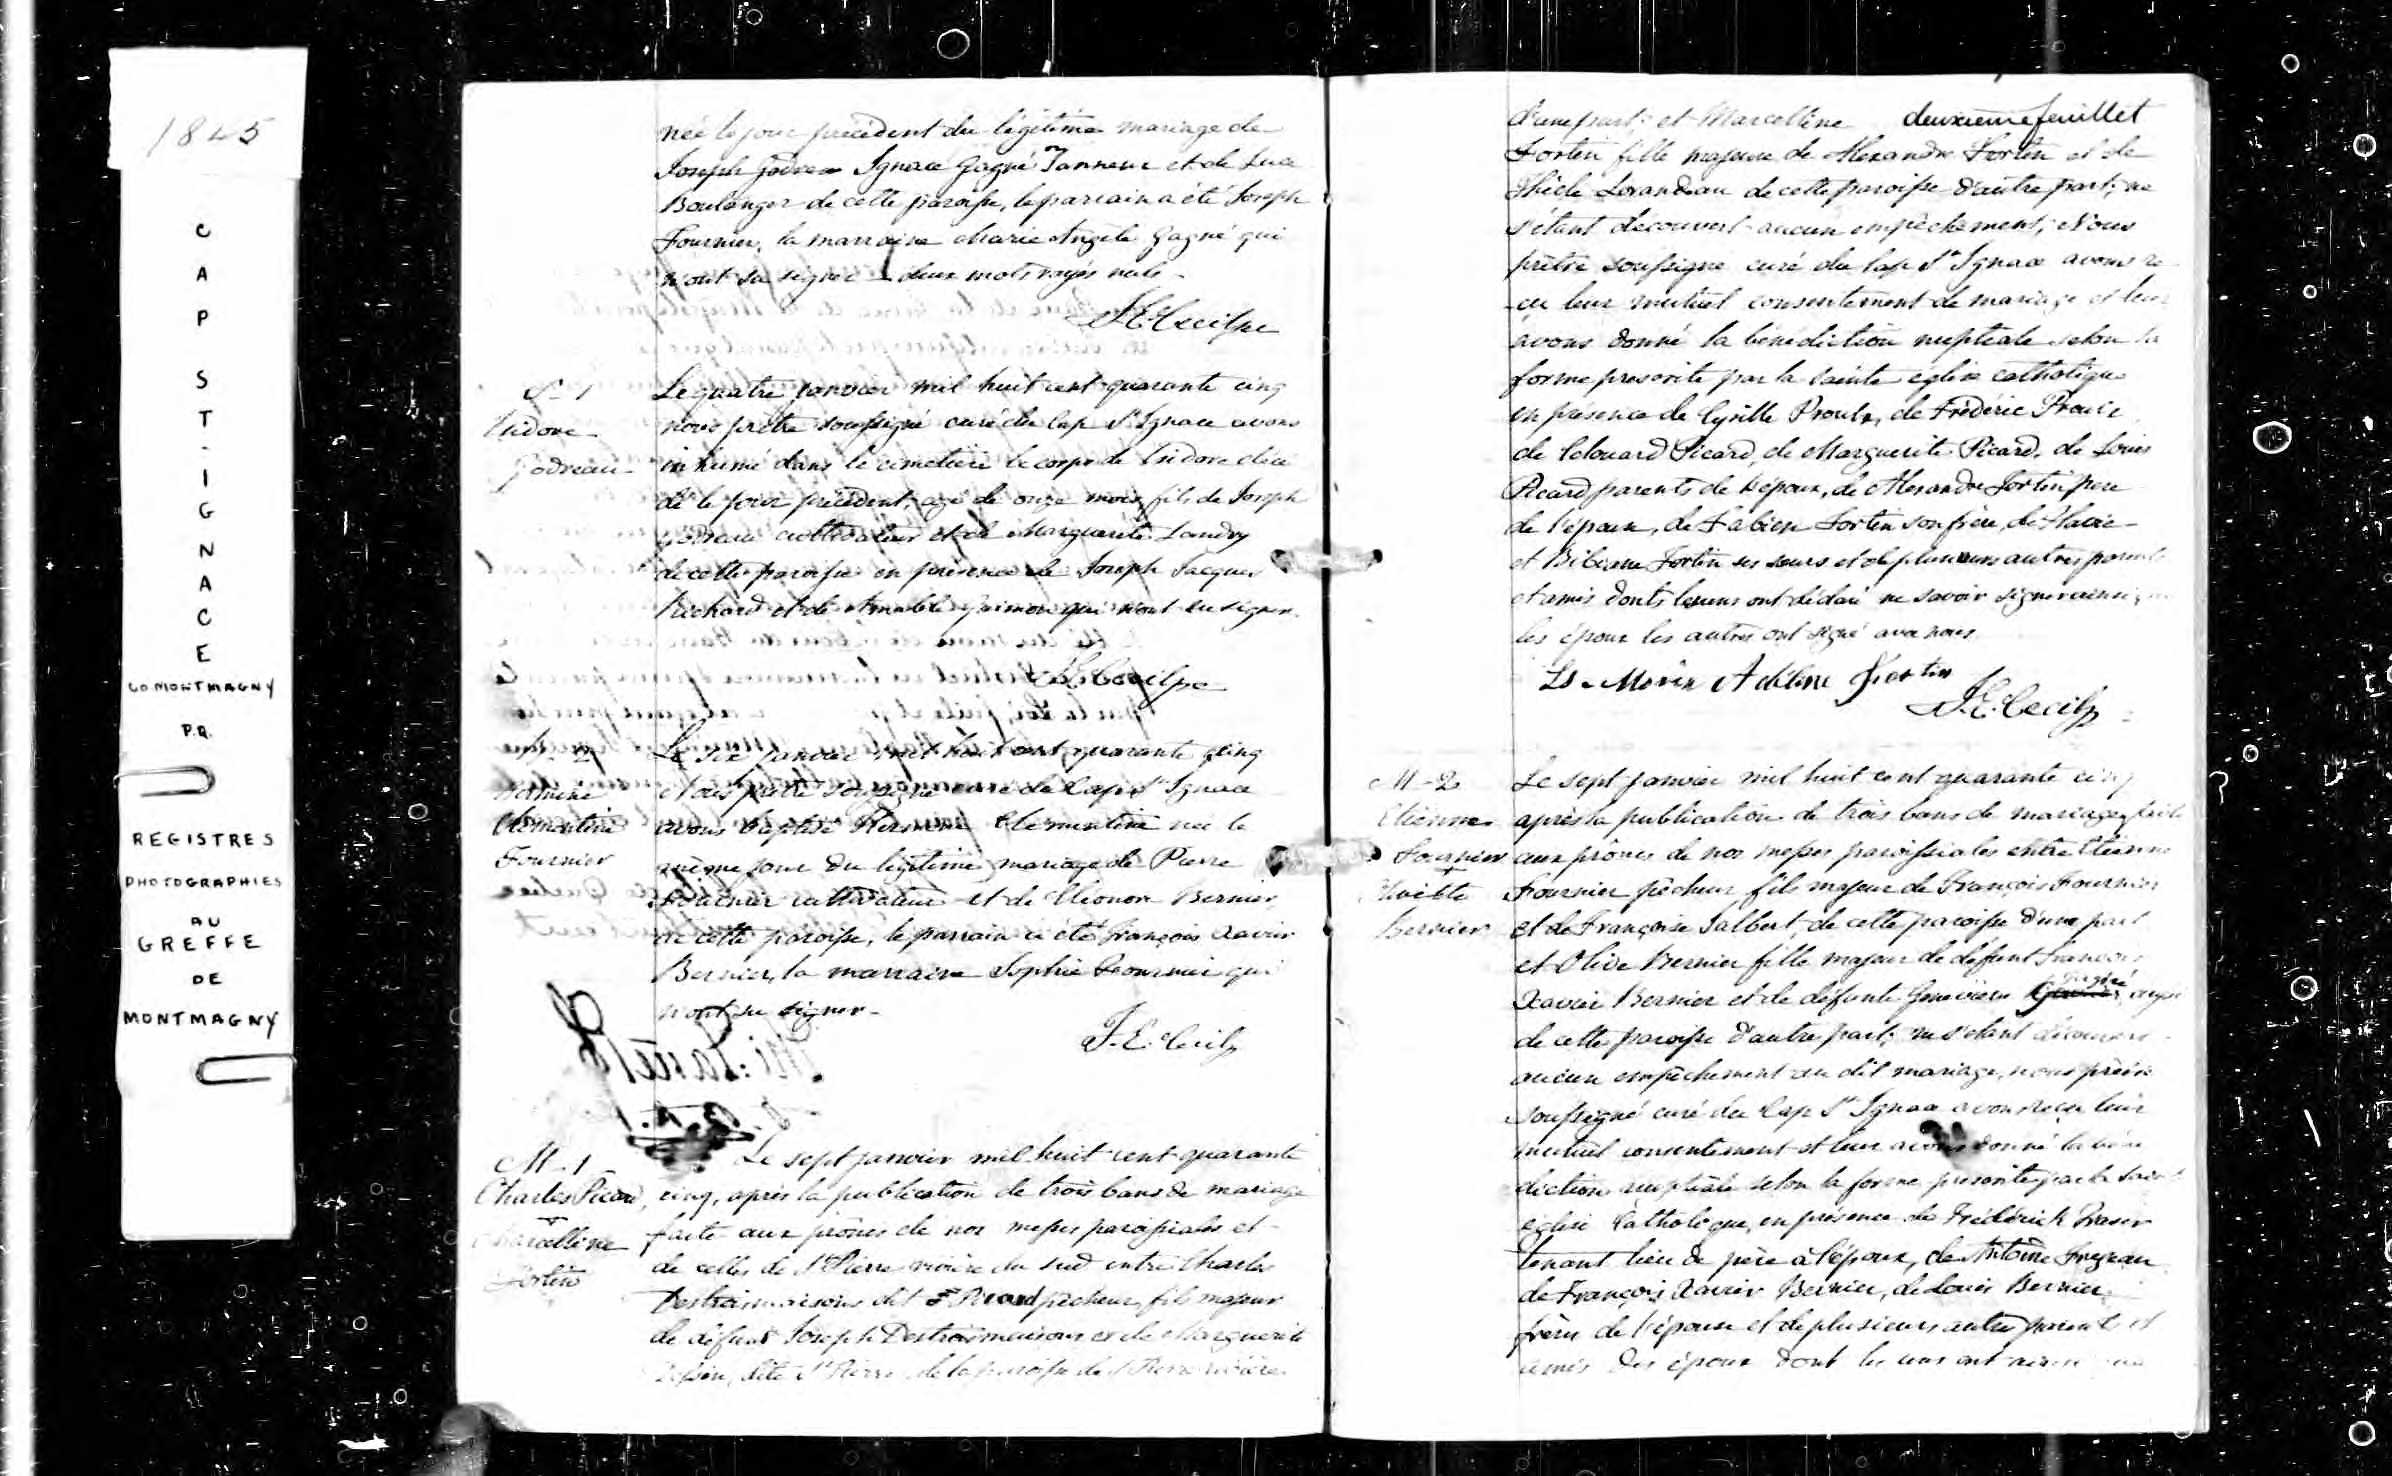 1845
CAP ST-IGNACE
CO. MONTMAGNY
P.Q.
REGISTRES
PHOTOGRAPHIES
AU
GREFFE
DE
MONTMAGNY
née le jour précédent du légitime mariage de
Joseph Ignace Gagné Tanneur et de Luce
Boulanger de cette paroisse, le parrain a été Joseph
Fournier, la marraine Marie Angèle Gagné qui
n'ont su signer - deux mots rayés nuls -
J. E. Cecile
S-1
Isidore
Godreau
Le quatre janvier mil huit cent quarante cinq
nous prêtre soussigné curé du Cap St Ignace avons
inhumé dans le cimetière le corps de Isidore décé
dé le jour précédent, agé de onze mois, fils de Joseph
Godreau cultivateur et de Marguerite Landry
de cette paroisse en présence de Joseph Jacques
Richard et de Amable qui n'ont su signer.
J. E. Cecile
Clémentine
Fournier
Le six janvier mil huit cent quarante cinq
Nous prêtre soussigné curé du Cap St Ignace
avons baptisé Clémentine née le
même jour du légitime mariage de Pierre
Fournier cultivateur et de Eléonore Bernier,
de cette paroisse, le parrain a été François Xavier
Bernier, la marraine Sophie Fournier qui
n'ont su signer -
J. E. Cecile
M-1
Charles Picard,
Marcelline
Fortin
Le sept janvier mil huit cent quarante
cinq, après la publication de trois bans de mariage
faite aux prônes de nos messes paroissiales et
de celles de St Pierre rivière du sud entre Charles
Destroismaisons dit Picard pêcheur, fils majeur
de défunt Joseph Destroismaisons et de Marguerite
dite St Pierre de la paroisse de St Pierre rivière
d'une part; et Marcelline deuxième feuillet
Fortin fille majeure de Alexandre Fortin et de
de cette paroisse d'autre part; ne
s'étant découvert aucun empêchement; Nous
prêtre soussigné curé du Cap St Ignace avons re
-cu leur mutuel consentement de mariage et leur
avons donné la bénédiction nuptiale selon la
forme prescrite par la sainte eglise catholique
en présence de Cyrille Proulx, de Frédéric
de Edouard Picard, de Marguerite Picard, de Louis
Picard parents de l'époux, de Alexandre Fortin père
de l'épouse, de Fabien Fortin son frère, de Flavie
et Bibiane Fortin ses sœurs et de plusieurs autres parents
et amis donts les uns ont déclaré ne savoir signer ainsi que
les époux les autres ont signé avec nous.
Ls Morin Adeline Fortin
J. E. Cecile
M-2
Etienne
Fournier
+
Olive
Bernier
Le sept janvier mil huit cent quarante cinq
après la publication de trois bans de mariage faite
aux prônes de nos messes paroissiales entre Etienne
Fournier pêcheur, fils majeur de François Fournier
et de Françoise Jalbert, de cette paroisse d'une part
et Olive Bernier fille majeur de défunt François
Xavier Bernier et de défunte Geneviève aussi
de cette paroisse d'autre part; ne s'étant découvert
aucun empêchement au dit mariage, nous prêtre
soussigné curé du Cap St Ignace avons reçu leur
mutuel consentement et leur avons donné la béné
diction nuptiale selon la forme prescrite par la sainte
église Catholique, en présence de Frédérick Fraser
tenant lieu de père à l'époux, de Antoine
de François Xavier Bernier, de Louis Bernier
frères de l'épouse et de plusieurs autre parents et
amis des époux dont les uns ont